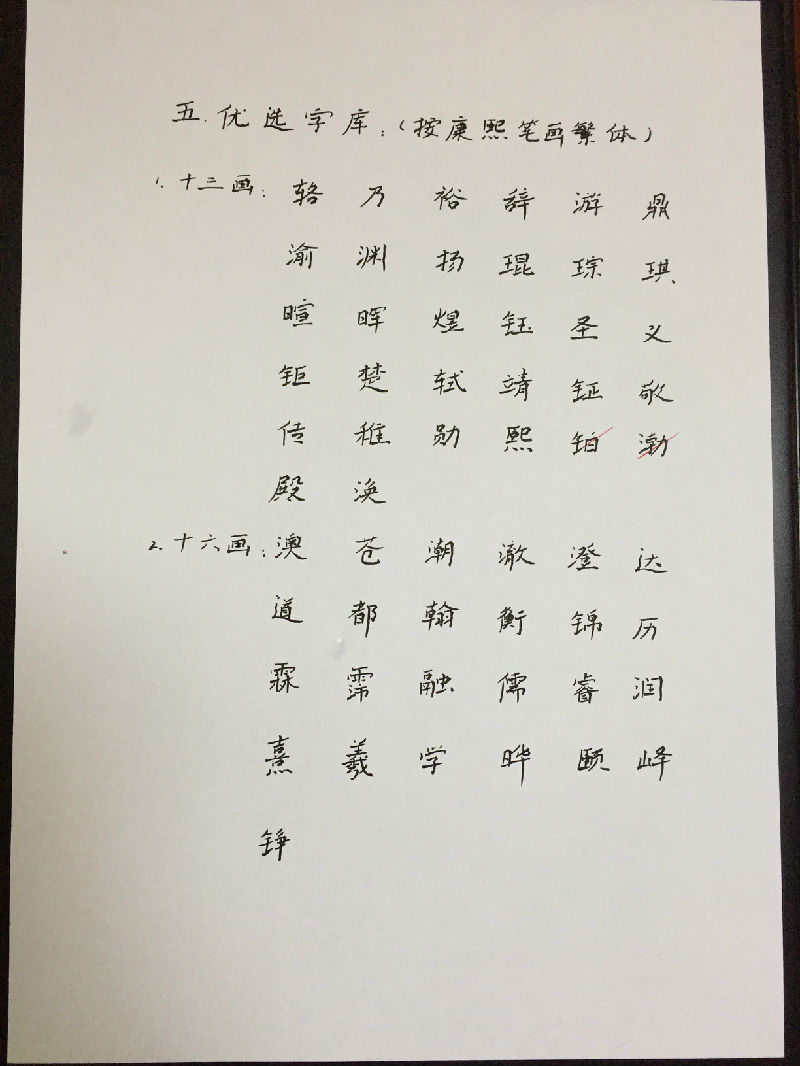 五.优选字库:(按康熙笔画繁体)
1.十三画:辂 乃 裕 辞 游 鼎
渝 渊 扬 琨 琮 琪
暄 晖 煜 钰 圣 义
钜 楚 轼 靖 钲 敬
传 稚 勋 熙 铂 渤
殿 涣
2.十六画:澳 苍 潮 澈 澄 达
道 都 翰 衡 锦 历
霖 霈 融 儒 睿 润
熹 羲 学 晔 颐 峄
铮